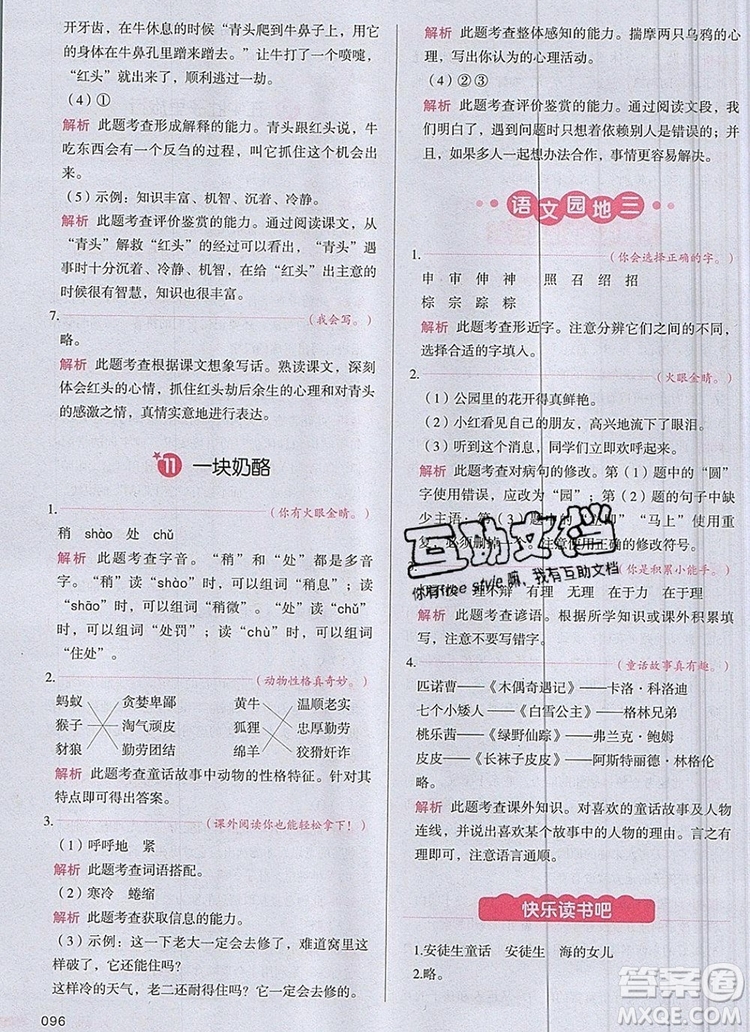 开牙齿，在牛休息的时候“青头爬到了牛鼻子上，用它
的身体在牛鼻孔里蹭来蹭去。让牛打了一个喷嚏，
“红头”就滚了出来，顺利逃过一劫。
（4）①
解析 此题考查形成解释的能力。青头跟红头说，牛
吃东西会有一个反刍的过程，叫红头躲过牛的牙齿，
就会有机会出来。
（5）示例：知识丰富、机智、沉着、冷静。
解析 此题考查评价鉴赏的能力。通过阅读课文，从
“青头”解救“红头”的语言和行动中能看到“青头”遇
事时十分沉着、冷静、机智，在给“红头”出主意的
时候很有智慧，知识也很丰富。
7.
（我会写。）
略。
解析 此题考查根据课文想象写话。熟读课文，深刻
体会红头的心情，抓住红头劫后余生的心理和对青头
的感激之情，真情实意地进行表达。
11 一块奶酪
1.
（你有火眼金睛。）
稍 shào 处 chǔ
解析 此题考查字音。“稍”和“处”都是多音
字。“稍”读“shào”时，意思是“稍息”；读“s
hāo”时，可以组词“稍微”。“处”读“chǔ”
时，可以组词“处罚”；读“chù”时，可以组词
“住处”。
2.
（动物性格真奇妙。）
蚂蚁 贪婪卑鄙 黄牛 温顺老实
猴子 淘气顽皮 狐狸 忠厚勤劳
豺狼 勤劳团结 绵羊 狡猾奸诈
解析 此题考查童话故事中动物的性格特征。针对其
特点即可得出答案。
3.
（课外阅读你也能轻松拿下！）
（1）呼呼地 紧
解析 此题考查词语搭配。
（2）寒冷 蜷缩
解析 此题考查获取信息的能力。
（3）示例：这一下老大一定会去修了，难道窝里这
样破了，它还能住吗？
这样冷的天气，老二还能耐得住吗？它一定会去修了。
096
解析 此题考查整体感知的能力。揣摩两只乌鸦的对
话，写出你认为的心理活动。
（4）②③
解析 此题考查评价鉴赏的能力。通过阅读文段，我
们明白了，遇到问题时只想着依赖别人是错误的；我
们也要积极想办法合作，事情更容易解决。
语文园地三
1.
（你会选择正确的字。）
申 审 伸 神 照 召 绍 招
棕 宗 踪 粽
解析 此题考查形近字。注意分辨它们之间的不同，
选择合适的字填入。
2.
（火眼金睛。）
（1）公园里的花开得真鲜艳。
（2）小红看见自己的朋友，高兴地流下了眼泪。
（3）听到这个消息，同学们立即欢呼起来。
解析 此题考查对病句的修改。第（1）题中的“圆”
字使用错误，应改为“园”；第（2）题的句子中缺
少主语；第（3）题中的“立即”“马上”使用重
复，必须删掉一个。注意使用正确的修改符号。
（你是积累小能手。）
理不辩 有理 无理 在于力 在于理
解析 此题考查谚语。根据所学知识或课外积累填
空。注意不要写错别字。
4.
（童话故事真有趣。）
匹诺曹——《木偶奇遇记》——卡洛·科洛迪
七个小矮人——《白雪公主》——格林兄弟
桃乐茜——《绿野仙踪》——弗兰克·鲍姆
皮皮——《长袜子皮皮》——阿斯特丽德·林格伦
略。
解析 此题考查课外知识。对喜欢的童话故事及人物
连线，并说出喜欢某个故事中的人物的理由。两个层
面，注意语言通顺。
快乐读书吧
1.安徒生童话 安徒生 海的女儿
2.略。
互助文档
你有free style嘛，我有互助文档
答案圈
MXQE.COM